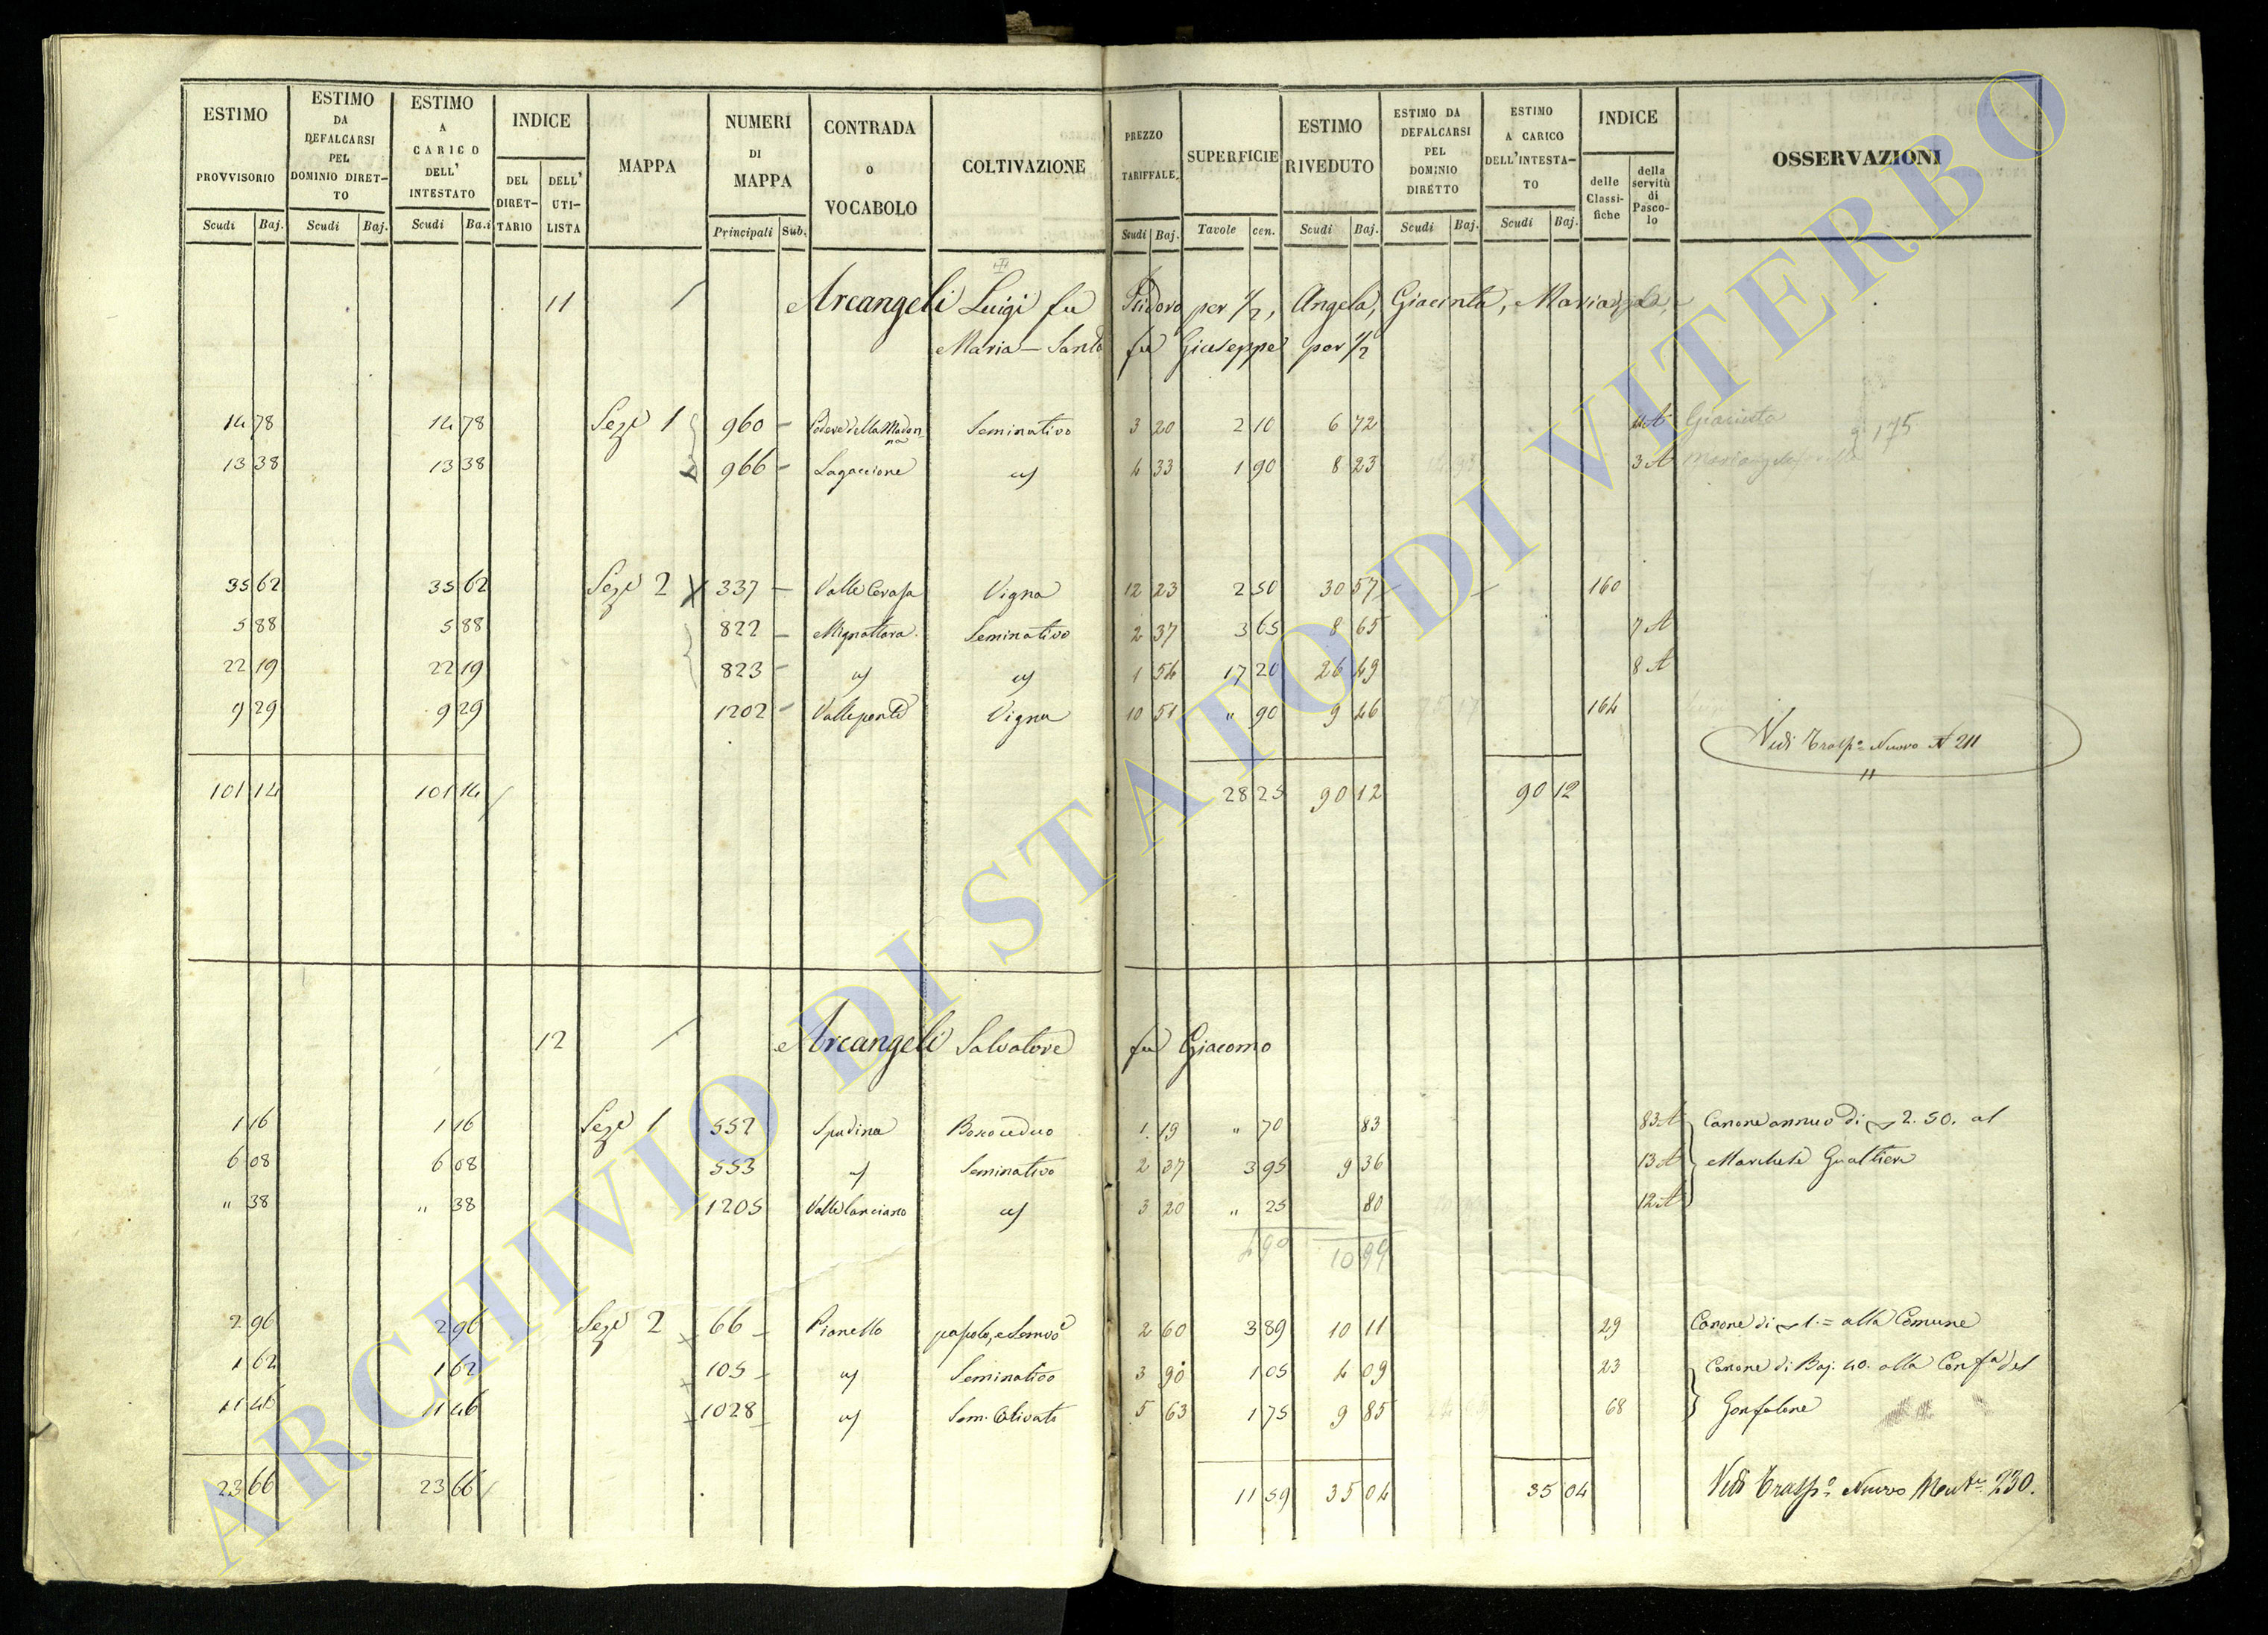 ESTIMO PROVVISORIO | ESTIMO DA DEFALCARSI PEL DOMINIO DIRETTO | ESTIMO A CARICO DELL' INTESTATO | INDICE | MAPPA | NUMERI DI MAPPA | CONTRADA O VOCABOLO | COLTIVAZIONE | PREZZO TARIFFALE. | SUPERFICIE | ESTIMO RIVEDUTO | ESTIMO DA DEFALCARSI PEL DOMINIO DIRETTO | ESTIMO A CARICO DELL'INTESTATO | INDICE | OSSERVAZIONI
Scudi | Baj. | Scudi | Baj. | Scudi | Ba.i | DEL DIRETTARIO | DELL' UTILISTA | Principali | Sub. | Scudi | Baj. | Tavole | cen. | Scudi | Baj. | Scudi | Baj. | Scudi | Baj. | delle Classifiche | della servitù di Pascolo
11 Arcangeli Luigi fu Isidoro per 1/2, Angela, Giacinta, Mariangela,
Maria-Santa fu Giuseppe per 1/2
14 78 | 14 78 | Sez.e 1 | 960 | Podere della Madonna | Seminativo | 3 20 | 2 10 | 6 72 | 4 A | Giacinta
13 38 | 13 38 | 966 | Lagaccione | a/ | 4 33 | 1 90 | 8 23 | 3 A | Mariangela | 175
35 62 | 35 62 | Sez.e 2 | 337 | Valle Cerasa | Vigna | 12 23 | 2 50 | 30 57 | 160
5 88 | 5 88 | 822 | Mignattara | Seminativo | 2 37 | 3 65 | 8 65 | 7 A
22 19 | 22 19 | 823 | a/ | a/ | 1 54 | 17 20 | 26 49 | 8 A
9 29 | 9 29 | 1202 | Valleponte | Vigna | 10 51 | " 90 | 9 46 | 164
Vedi Trasp.o Nuovo N 211
101 14 | 101 14 | 28 25 | 90 12 | 90 12
12 Arcangeli Salvatore fu Giacomo
1 16 | 1 16 | Sez.e 1 | 552 | Spadina | Bosco ceduo | 1 19 | " 70 | 83 | 83 A | Canone annuo di 2.50. al
6 08 | 6 08 | 553 | a/ | Seminativo | 2 37 | 3 95 | 9 36 | 13 A | Marchese Gualtieri
" 38 | " 38 | 1205 | Valle Canciano | a/ | 3 20 | " 25 | 80 | 12 A
4 90 | 10 99
2 96 | 2 96 | Sez.e 2 | 66 | Pianello | 2 60 | 3 89 | 10 11 | 29 | Canone di 1.= alla Comune
1 62 | 1 62 | 105 | a/ | Seminativo | 3 90 | 1 05 | 4 09 | 23 | Canone di Baj. 40. alla Conf.a del
11 46 | 11 46 | 1028 | a/ | Sem. Olivato | 5 63 | 1 75 | 9 85 | 68 | Gonfalone
23 66 | 23 66 | 11 59 | 35 04 | 35 04 | Vedi Trasp.o Nuovo 230.
ARCHIVIO DI STATO DI VITERBO